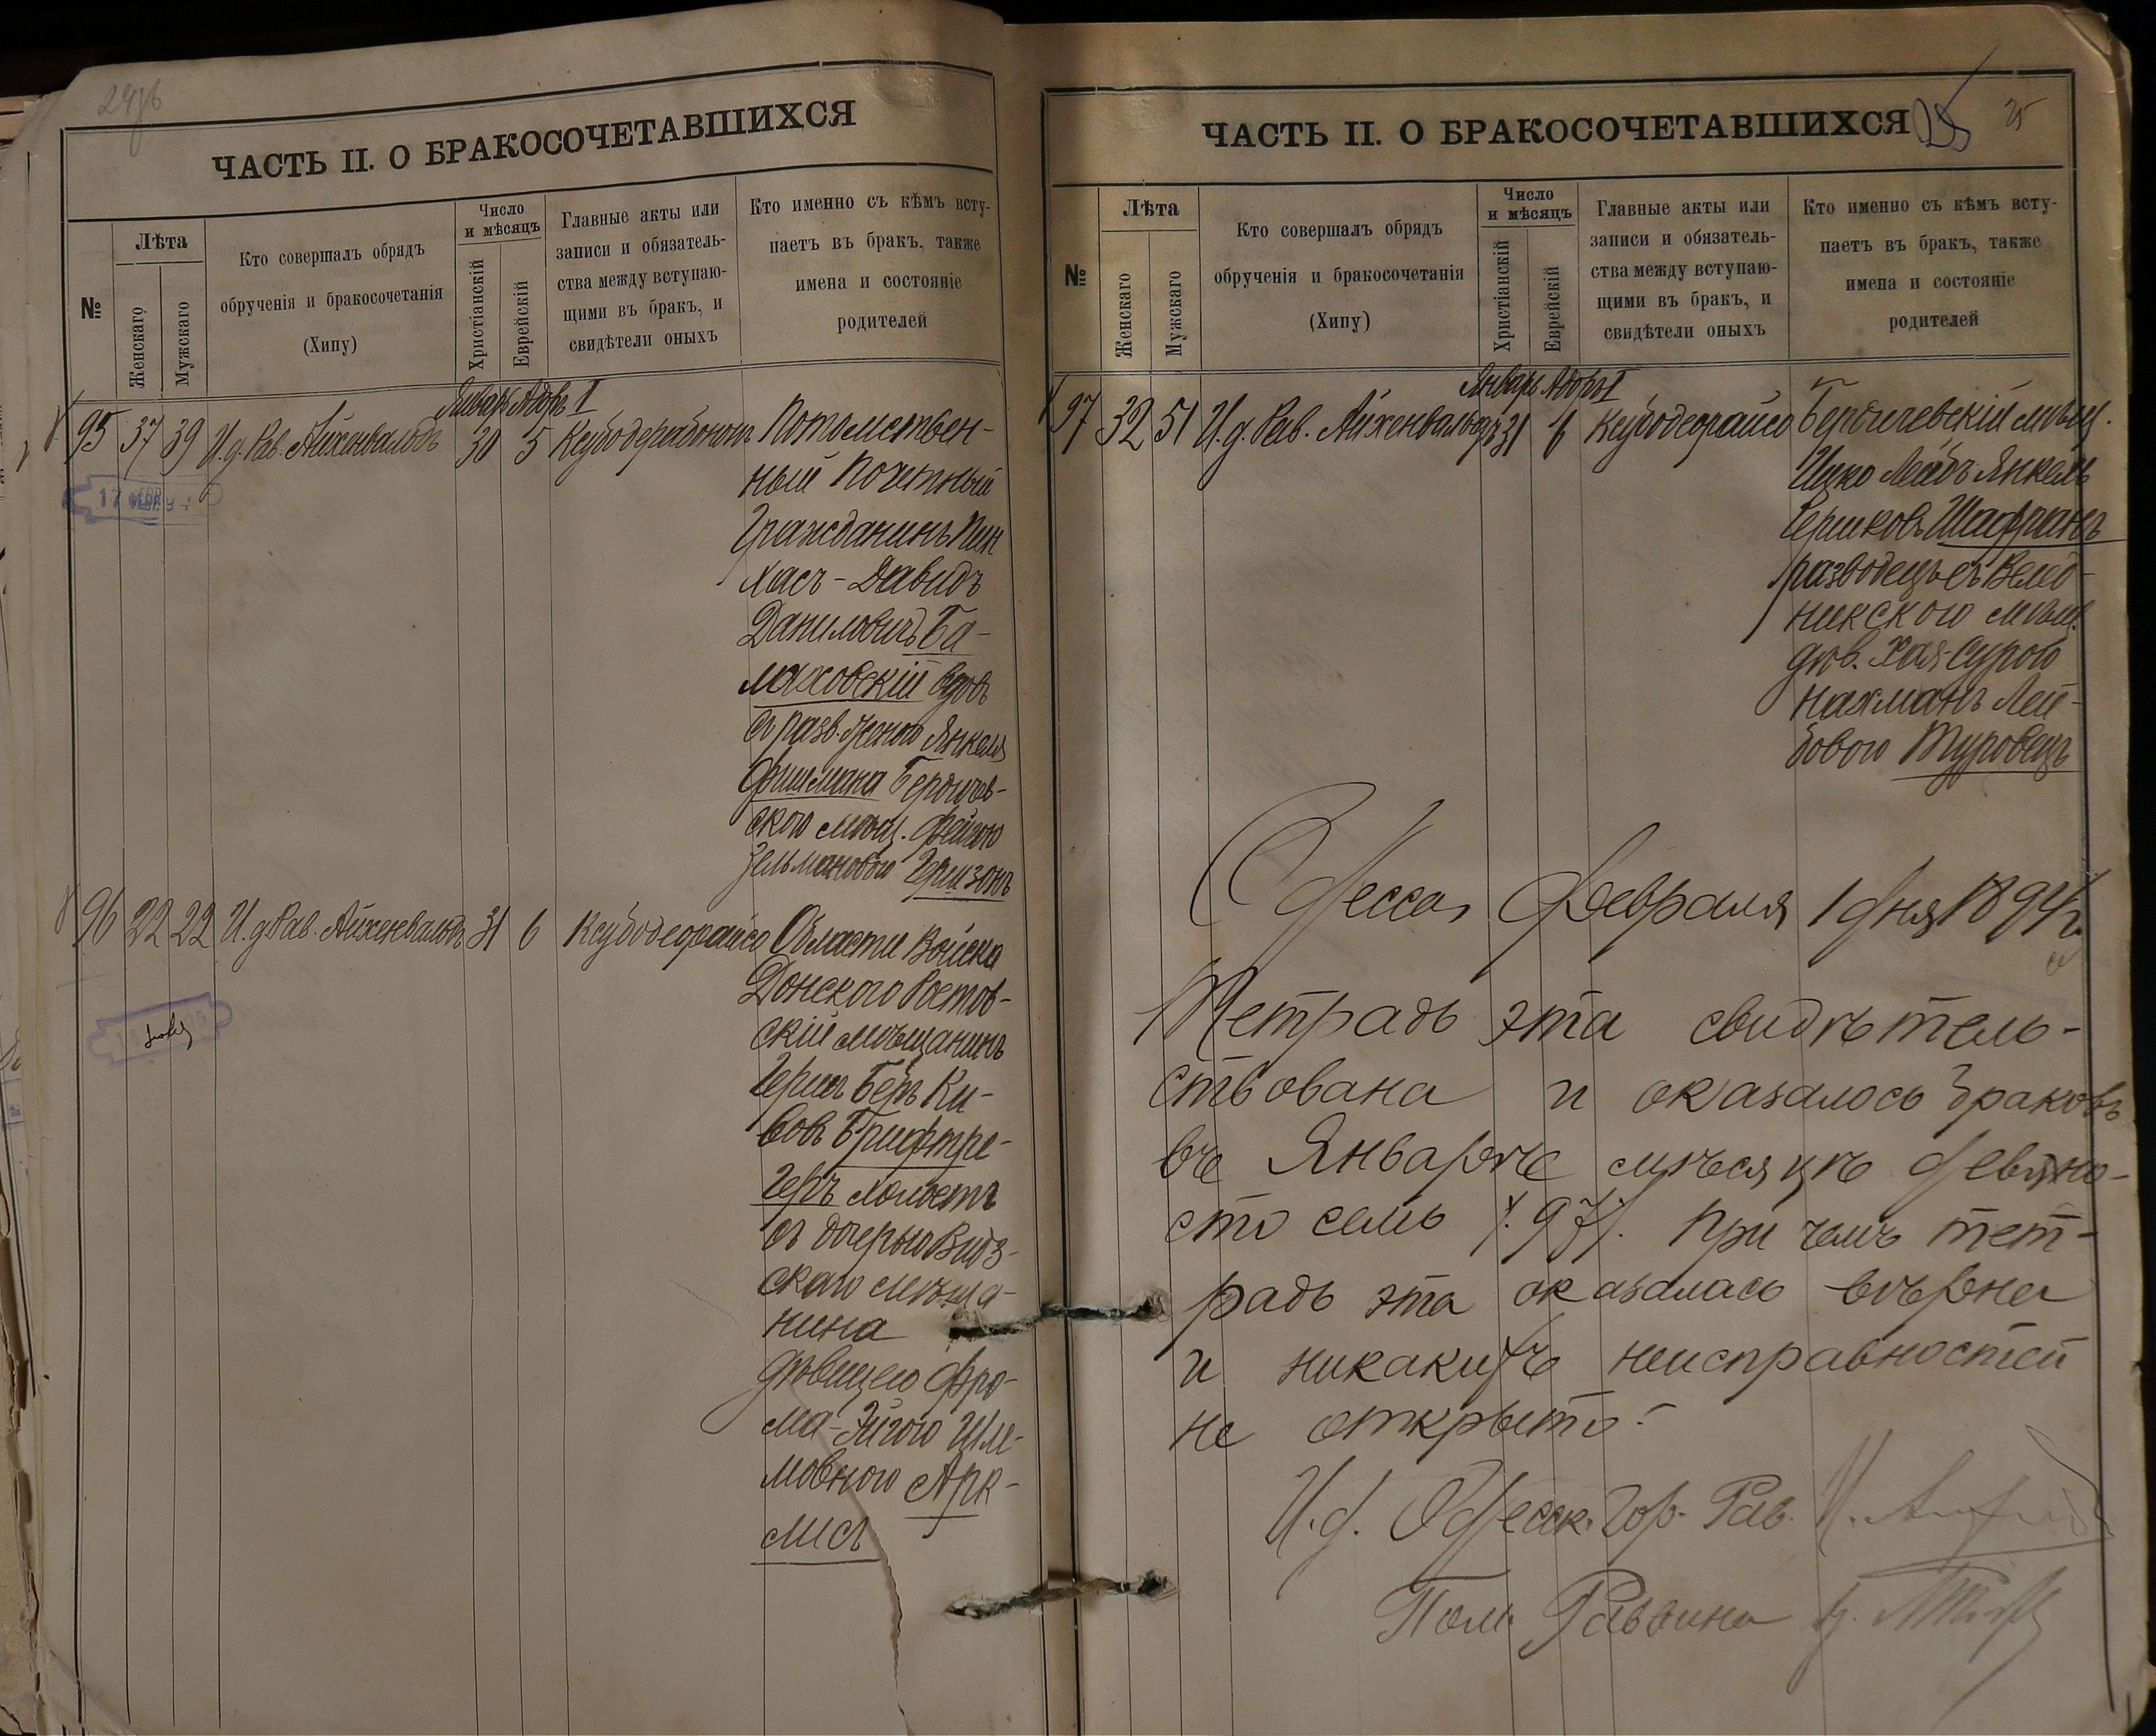 ЧАСТЬ II. О БРАКОСОЧЕТАВШИХСЯ
№
Лѣта
Женскаго
Мужскаго
Кто совершалъ обрядъ
обрученія и бракосочетанія
(Хипу)
Число
и мѣсяцъ
Христіанскій
Еврейскій
Главные акты или
записи и обязатель-
ства между вступаю-
щими въ бракъ, и
свидѣтели оныхъ
Кто именно съ кѣмъ всту-
паетъ въ бракъ, также
имена и состояніе
родителей
Январь Адръ I
95 37 39 И.д. Рав. Айхенвальдъ 30 5 Потомствен-
ный Почетный
Гражданинъ Пин
хасъ-Давидъ
Даниловичъ Ба-
лаховскій вдов.
съ разв. женою Янкеля
Фишмана Бердичев-
скою мѣщ. Фейгою
Зельмановою
96 22 22 И.д. Рав. Айхенвальдъ 31 6 Ксубодеорайсо Области Войска
Донского Ростов-
скій мѣщанинъ
Гершъ Беръ Ки-
вовъ Брифтре-
геръ холостъ
съ дочерью Видз-
скаго мѣща-
нина
дѣвицею Фро-
ма-Эйгою Шле-
мовною Арк-
мисъ
ЧАСТЬ II. О БРАКОСОЧЕТАВШИХСЯ
25
25
№
Лѣта
Женскаго
Мужскаго
Кто совершалъ обрядъ
обрученія и бракосочетанія
(Хипу)
Число
и мѣсяцъ
Христіанскій
Еврейскій
Главные акты или
записи и обязатель-
ства между вступаю-
щими въ бракъ, и
свидѣтели оныхъ
Кто именно съ кѣмъ всту-
паетъ въ бракъ, также
имена и состояніе
родителей
Январь Адоръ I
97 32 51 И.д. Рав. Айхенвальдъ 31 6 Ксубодеорайсо Бердичевскій мѣщ.
Ицко Лейбъ Янкель
Гершковъ Шафранъ
разводецъ съ Велед-
никскою мѣщ.
дѣв. Хая-Сурою
Нахманъ Лей-
бовою Туровецъ
Одесса, Февраля 1 дня 1894 г.
Тетрадь эта свидѣтель-
ствована и оказалось браковъ
въ Январѣ мѣсяцѣ девяно-
сто семь /:97:/. При чемъ тет-
радь эта оказалась вѣрна
и никакихъ неисправностей
не открыто.-
И.д. Одесск. Гор. Рав.
Пом. Раввина